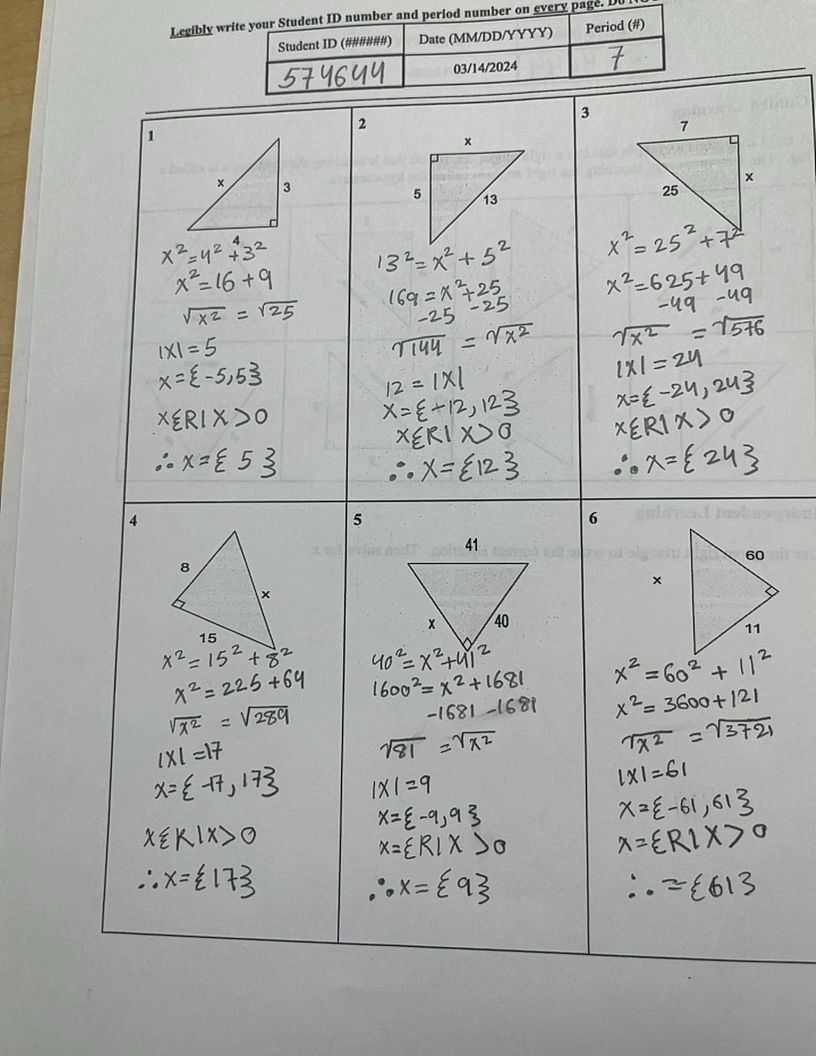 Legibly write your Student ID number and period number on every page. Do NO
Student ID (######) Date (MM/DD/YYYY) Period (#)
574644 03/14/2024 7
1
x
3
4
x²=4²+3²
x²=16+9
√x² = √25
|x|=5
x={-5,5}
x{R|x>0
∴x={5}
2
x
5
13
13²=x²+5²
169=x²+25
-25 -25
√144 = √x²
12 = |x|
x={-12,12}
x{R|x>0
∴x={12}
3
7
x
25
x²=25²+7²
x²=625+49
-49 -49
√x² = √576
|x|=24
x={-24,24}
x{R|x>0
∴x={24}
4
8
x
15
x²=15²+8²
x²=225+64
√x² = √289
|x|=17
x={-17,17}
x{R|x>0
∴x={17}
5
41
x
40
40²=x²+41²
1600²=x²+1681
-1681 -1681
√81 = √x²
|x|=9
x={-9,9}
x={R|x>0
∴x={9}
6
60
x
11
x²=60²+11²
x²=3600+121
√x² = √3721
|x|=61
x={-61,61}
x={R|x>0
∴={61}